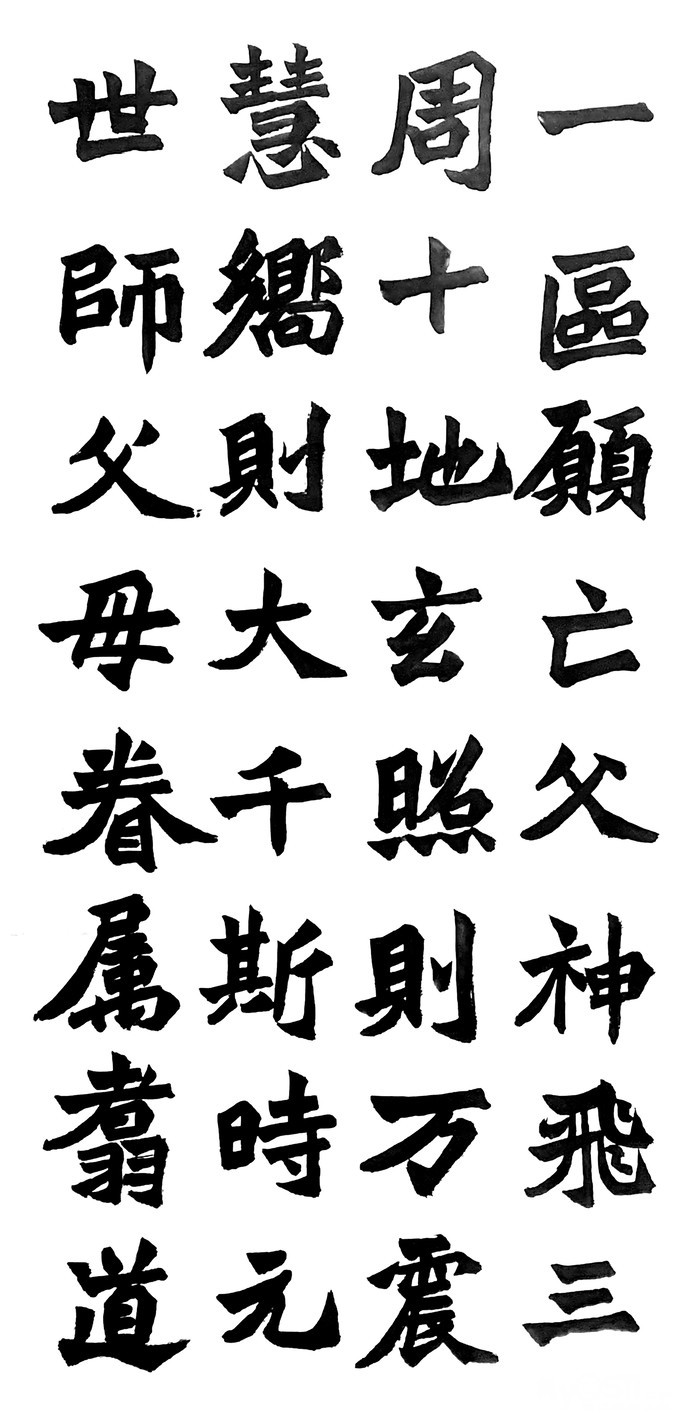 一區願亡父神飛三
周十地玄照則万震
慧嚮則大千斯時元
世師父母眷属翥道